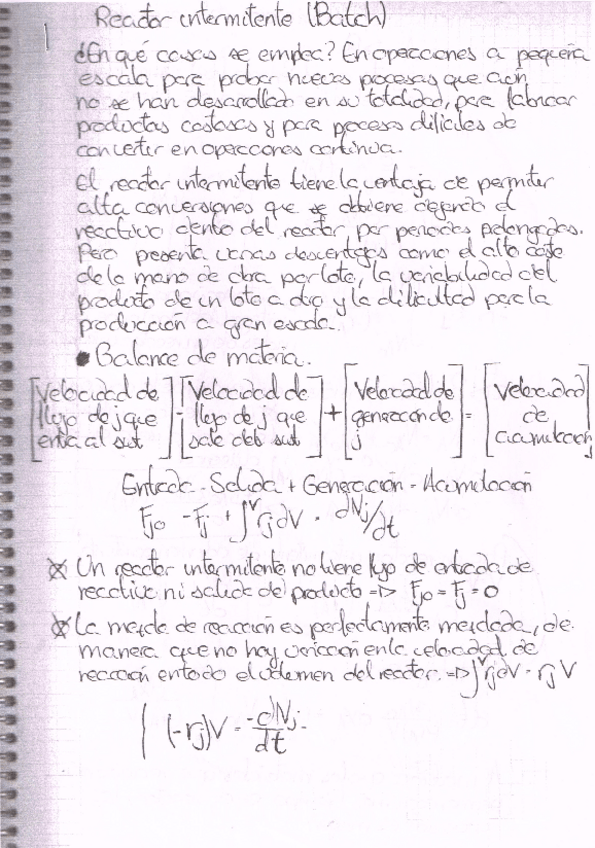 Reactor intermitente (Batch)
1
¿En qué casos se emplea? En operaciones a pequeña
escala para probar nuevos procesos que aún
no se han desarrollado en su totalidad, para fabricar
productos costosos y para procesos difíciles de
convertir en operaciones continua.
El reactor intermitente tiene la ventaja de permitir
alta conversiones que se obtiene dejando el
reactivo dentro del reactor por periodos prolongados.
Pero presenta varias desventajas como el alto coste
de la mano de obra por lote, la variabilidad del
producto de un lote a otro y la dificultad para la
producción a gran escala.
• Balance de materia.
[Velocidad de flujo de j que entra al sist] - [Velocidad de flujo de j que sale del sist] + [Velocidad de generación de j] = [Velocidad de acumulación]
Entrada - Salida + Generación = Acumulación
Fjo - Fj + ∫ⱽ rj dV = dNj/dt
* Un reactor intermitente no tiene flujo de entrada de
reactivo ni salida de producto => Fjo = Fj = 0
* La mezcla de reacción es perfectamente mezclada, de
manera que no hay variación en la velocidad de
reacción en todo el volumen del reactor. => ∫ⱽ rj dV = rj V
(-rj)V = -dNj/dt